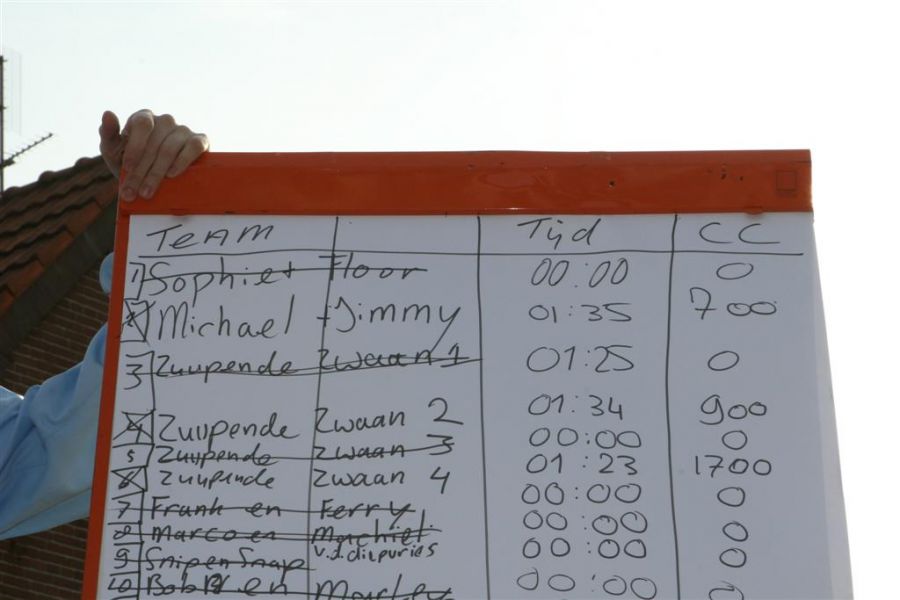 Team Tijd CC
1 Sophie + Floor 00:00 0
2 Michael + Jimmy 01:35 700
3 Zuipende Zwaan 1 01:25 0
4 Zuipende Zwaan 2 01:34 900
5 Zuipende Zwaan 3 00:00 0
6 Zuipende Zwaan 4 01:23 1700
7 Frank en Ferry 00:00 0
8 Marco en Machiel 00:00 0
9 Snip en Snap 00:00 0
10 Bob en 00:00